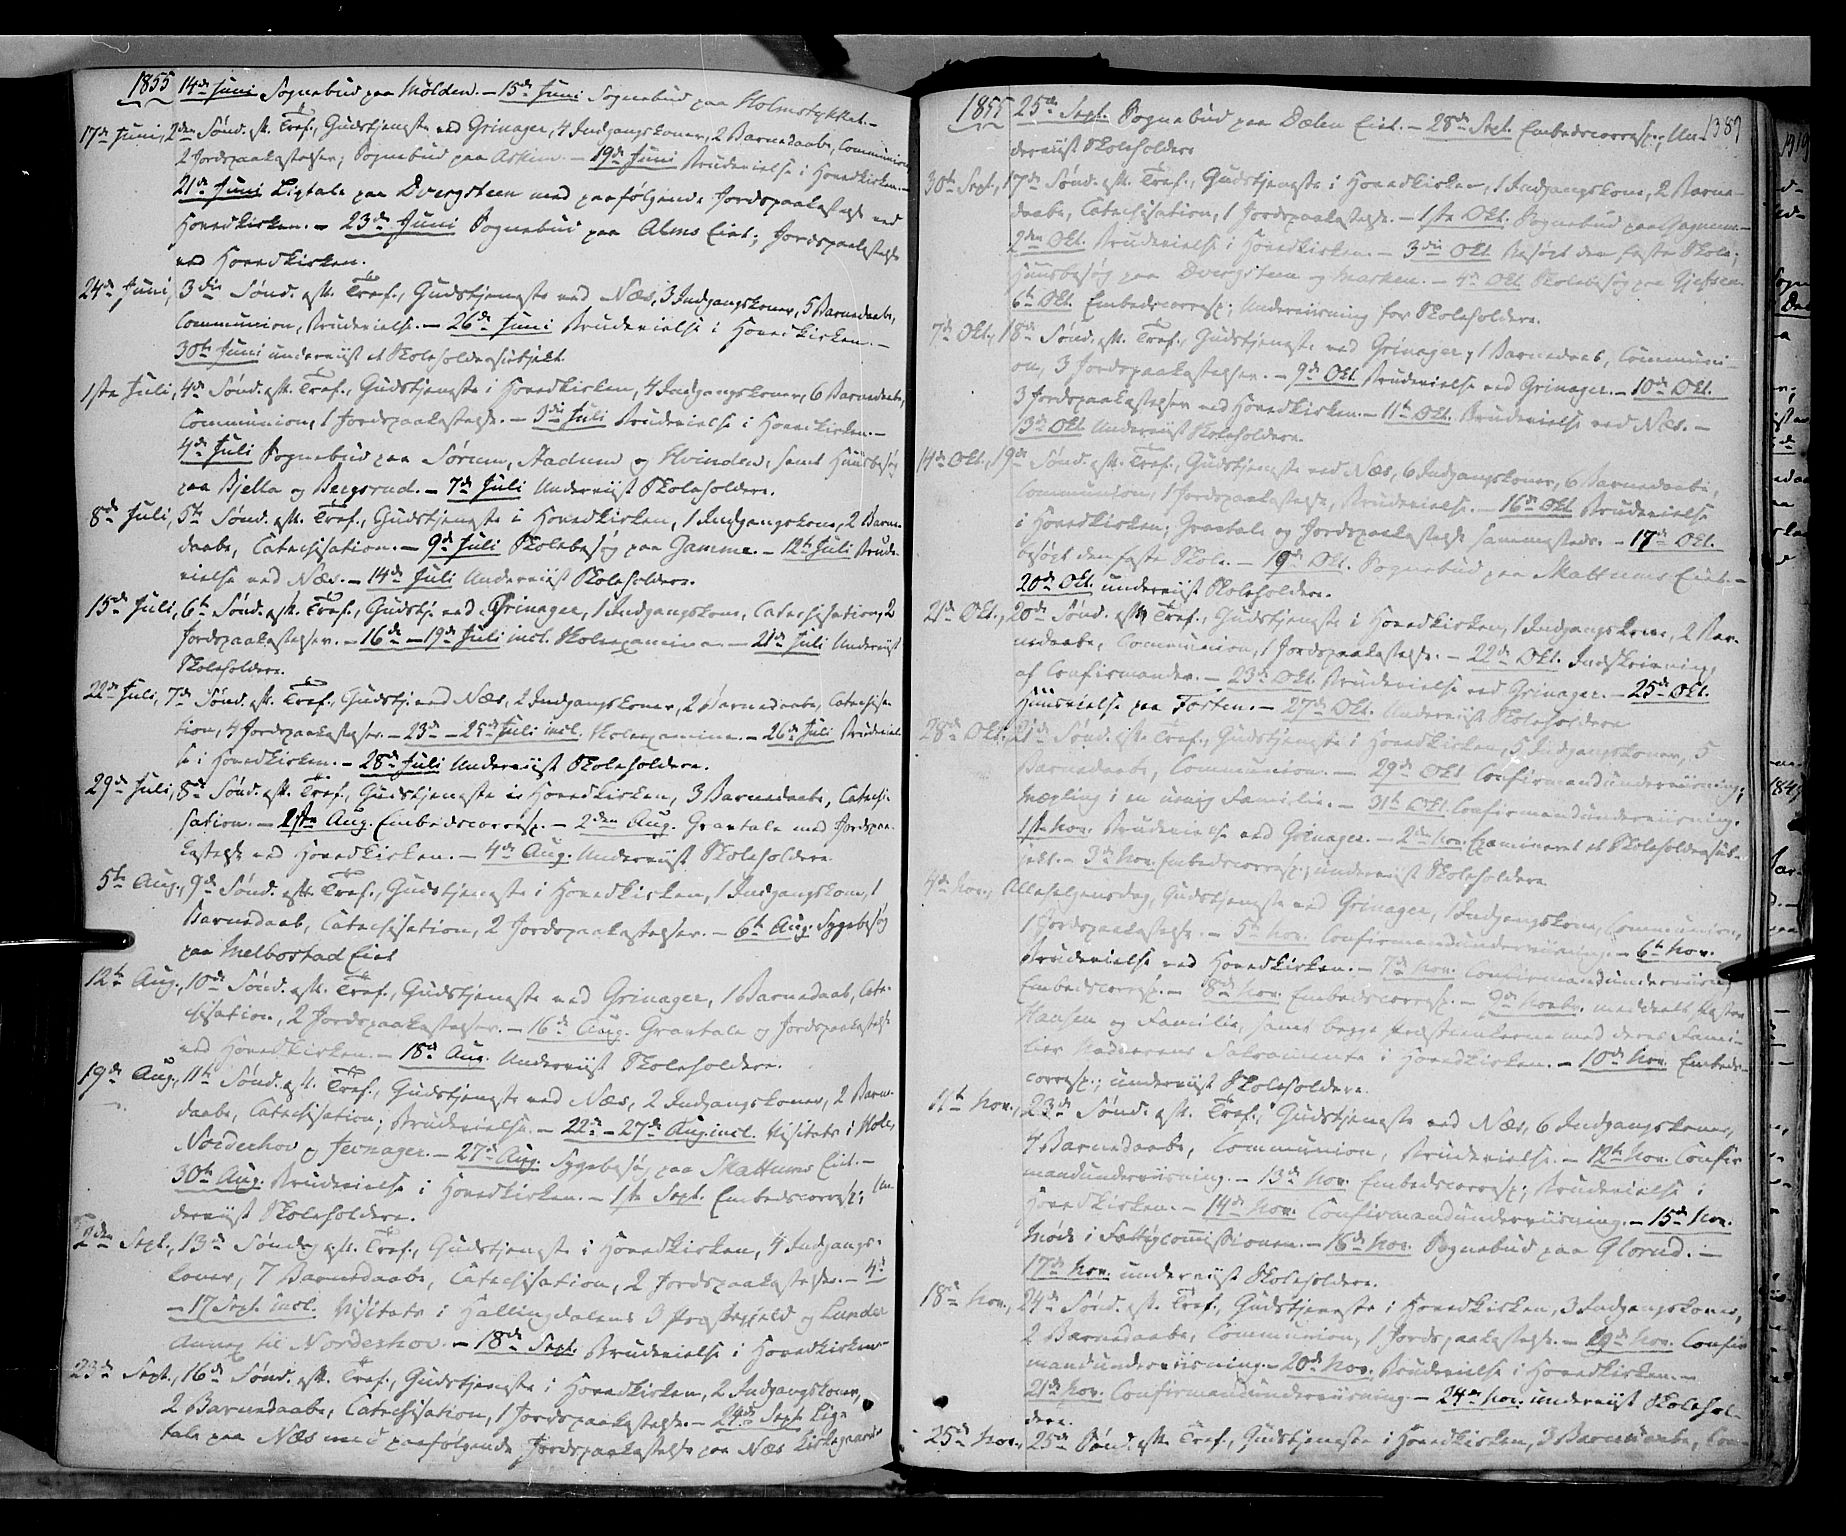 1855 14de Juni Sognebud paa Mølden. – 15de Juni Sognebud paa Holmstykket. –
17de Juni, 2den Sønd. eft. Tref., Gudstjeneste ved Grinager, 4 Indgangskoner, 2 Barnedaabe, Communion
2 Jordspaakastelser; Sognebud paa Askim. – 19de Juni Brudevielse i Hovedkirken. –
21de Juni Ligtale paa Dvergsteen med paafølgende Jordspaakastelse ved
Hovedkirken. – 23de Juni Sognebud paa Alms Eiet; Jordspaakastelse
ved Hovedkirken.
24de Juni, 3die Sønd. eft. Tref., Gudstjeneste ved Næs, 3 Indgangskoner, 5 Barnedaabe,
Communion, Brudevielse. – 26de Juni Brudevielse i Hovedkirken. –
30te Juni underviist et Skoleholdersubjekt.
1ste Juli, 4de Sønd. eft. Tref., Gudstjeneste i Hovedkirken, 4 Indgangskoner, 6 Barnedaabe,
Communion, 1 Jordspaakastelse. – 3die Juli Brudevielse i Hovedkirken. –
4de Juli Sognebud paa Sørum, Stadum og Hvinden, samt Huusbesøg
paa Bjella og Bergsrud. – 7de Juli Underviist Skoleholdere.
8de Juli, 5te Sønd. eft. Tref., Gudstjeneste i Hovedkirken, 1 Indgangskone, 2 Barne-
daabe, Catechisation. – 9de Juli Skolebesøg paa Gamme. – 12te Juli Brude-
vielse ved Næs. – 14de Juli Underviist Skoleholdere.
15de Juli, 6te Sønd. eft. Tref., Gudstj. ved Grinager, 1 Indgangskone, Catechisation, 2
Jordspaakastelser. – 16de – 19de Juli incl. Skoleexamina. – 21de Juli Underviist
Skoleholdere.
22de Juli, 7de Sønd. eft. Tref., Gudstj. ved Næs, 2 Indgangskoner, 2 Barnedaabe, Catechisa-
tion, 4 Jordspaakastelser. – 23de – 25de Juli incl. Skoleexamina. – 26de Juli Brudeviel-
se i Hovedkirken. – 28de Juli Underviist Skoleholdere.
29de Juli, 8de Sønd. eft. Tref., Gudstjeneste i Hovedkirken, 3 Barnedaabe, Catechi-
sation. – 1ste Aug. Embedscorresp. – 2den Aug. Gravtale med Jordspaa-
kastelse ved Hovedkirken. – 4de Aug. Underviist Skoleholdere.
5te Aug., 9de Sønd. eft. Tref., Gudstjeneste i Hovedkirken, 1 Indgangskone, 1
Barnedaab, Catechisation, 2 Jordspaakastelser. – 6te Aug. Sygebesøg
paa Melbostad Eiet
12te Aug., 10de Sønd. eft. Tref., Gudstjeneste ved Grinager, 1 Barnedaab, Cate-
chisation, 2 Jordspaakastelser. – 16de Aug. Gravtale og Jordspaakastelse
ved Hovedkirken. – 18de Aug. Underviist Skoleholdere.
19de Aug., 11te Sønd. eft. Tref., Gudstjeneste ved Næs, 2 Indgangskoner, 2 Barne-
daabe, Catechisation; Brudevielse. – 22de – 27de Aug. incl. Visitats i Hole,
Norderhov og Jevnager. – 27de Aug. Sygebesøg paa Skattums Eiet. –
30te Aug. Brudevielse i Hovedkirken. – 1ste Sept. Embedscorresp.; Un-
derviist Skoleholdere.
2den Sept., 13de Søndag eft. Tref., Gudstjeneste i Hovedkirken, 4 Indgangs-
koner, 7 Barnedaabe, Catechisation, 2 Jordspaakastelser. – 4de
– 17 Sept. incl. Visitats i Hallingdalens 3 Præstegjeld og Lunder
Annex til Norderhov. – 18de Sept. Brudevielse i Hovedkirken. –
23de Sept., 16de Sønd. eft. Tref., Gudstjeneste i Hovedkirken, 2 Indgangskoner,
2 Barnedaabe, Catechisation, 1 Jordspaakastelse. – 24de Sept. Lig-
tale paa Næs med paafølgende Jordspaakastelse paa Næs Kirkegaard.
1855 25de Sept. Sognebud paa Dælen Eiet. – 28de Sept. Embedscorresp.; Un-
1387
derviist Skoleholdere
30te Sept., 17de Sønd. eft. Tref., Gudstjeneste i Hovedkirken, 1 Indgangskone, 2 Barne-
daabe, Catechisation, 1 Jordspaakastelse. – 1ste Okt. Sognebud paa
2den Okt. Brudevielse i Hovedkirken. – 3die Okt. Besøgt den faste Skole;
Huusbesøg paa Dvergsteen og Marken. – 4de Okt. Skolebesøg paa
6te Okt. Embedscorresp; Underviisning for Skoleholdere.
7de Okt., 18de Sønd. eft. Tref., Gudstjeneste ved Grinager, 1 Barnedaab, Communi-
on, 3 Jordspaakastelser. – 9de Okt. Brudevielse ved Grinager. – 10de Okt.
3 Jordspaakastelser ved Hovedkirken. – 11te Okt. Brudevielse ved Næs. –
13de Okt. Underviist Skoleholdere.
14de Okt., 19de Sønd. eft. Tref., Gudstjeneste ved Næs, 6 Indgangskoner, 6 Barnedaabe,
Communion, 1 Jordspaakastelse, Brudevielse. – 16de Okt. Brudevielse
i Hovedkirken; Gravtale og Jordspaakastelse sammesteds. – 17de Okt.
besøgt den faste Skole. – 19de Okt. Sognebud paa Skattums Eiet. –
20de Okt. underviist Skoleholdere.
21de Okt., 20de Sønd. eft. Tref., Gudstjeneste i Hovedkirken, 1 Indgangskone, 2 Bar-
nedaabe, Communion, 1 Jordspaakastelse. – 22de Okt. Indskrivning
af Confirmander. – 23de Okt. Brudevielse ved Grinager. – 25de Okt.
Huusvielse paa Tosten. – 27de Okt. Underviist Skoleholdere
28de Okt., 21de Sønd. eft. Tref., Gudstjeneste i Hovedkirken, 5 Indgangskoner, 5
Barnedaabe, Communion. – 29de Okt Confirmandunderviisning;
Mægling i en uenig Familie. – 31te Okt. Confirmandunderviisning.
1ste Nov. Brudevielse ved Grinager. – 2den Nov. Examineret et Skoleholdersub-
jekt. – 3die Nov. Embedscorresp.; underviist Skoleholdere
4de Nov., Allehelgensdag, Gudstjeneste ved Grinager, 1 Indgangskone, Communion,
1 Jordspaakastelse. – 5te Nov. Confirmandunderviisning. – 6te Nov.
Brudevielse ved Hovedkirken. – 7de Nov. Confirmandunderviisning
Embedscorresp. – 8de Nov. Embedscorresp. – 9de Novbr. meddeelt Pastor
Hansen og Familie, samt begge med deres Fami-
lier Nadverens Sakramente i Hovedkirken. – 10de Nov. Embeds-
corresp.; underviist Skoleholdere.
11te Nov., 23de Sønd. eft. Tref., Gudstjeneste ved Næs, 6 Indgangskoner,
4 Barnedaabe, Communion, Brudevielse. – 12te Nov. Confir-
mandunderviisning. – 13de Nov. Embedscorresp; Brudevielse i
Hovedkirken. – 14de Nov. Confirmandunderviisning. – 15de Nov.
Møde i Fattigcommissionen. – 16de Nov. Sognebud paa Glorud. –
17de Nov. underviist Skoleholdere.
18de Nov., 24de Sønd. eft. Tref., Gudstjeneste i Hovedkirken, 3 Indgangskoner,
2 Barnedaabe, Communion, 1 Jordspaakastelse. – 19de Nov. Confir-
mandunderviisning. – 20de Nov. Brudevielse i Hovedkirken. –
21de Nov. Confirmandunderviisning – 24de Nov. underviist Skolehol-
dere.
25de Nov., 25de Sønd. eft. Tref., Gudstjeneste i Hovedkirken, 3 Barnedaabe, Com-